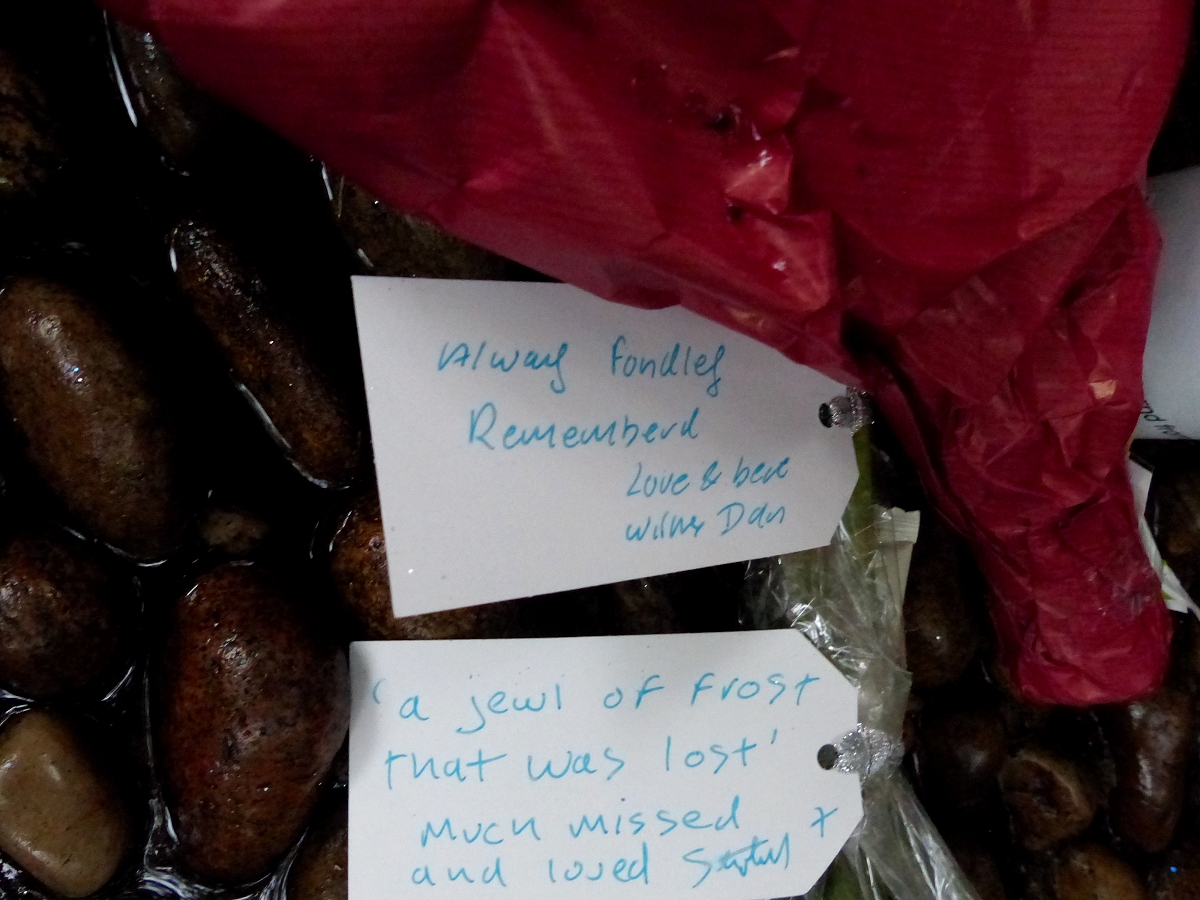 Always fondley
Rememberd
Love & best
wishes Dan
'a jewl of frost
that was lost'
Much missed
and loved x